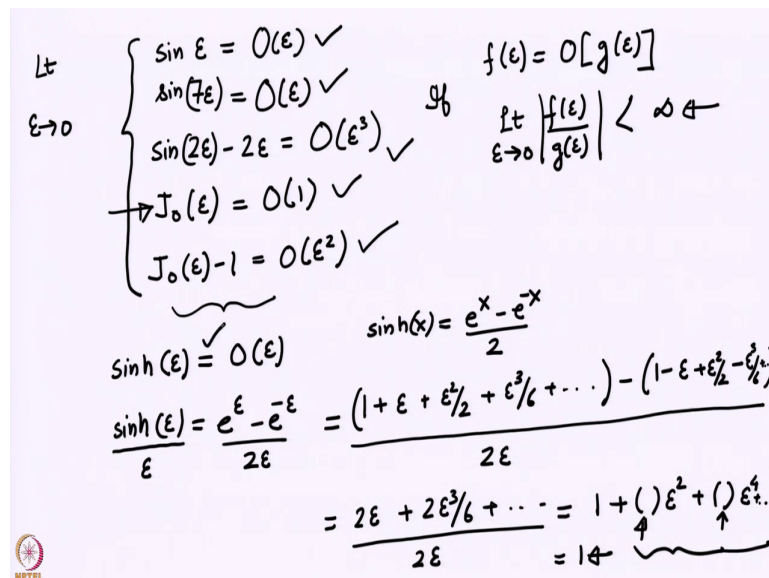 Lt
ε→0
sin ε = O(ε) ✓
sin(7ε) = O(ε) ✓
sin(2ε) - 2ε = O(ε³) ✓
→ J₀(ε) = O(1) ✓
J₀(ε) - 1 = O(ε²) ✓
f(ε) = O[g(ε)]
If Lt ε→0 |f(ε)/g(ε)| < ∞ ←
sinh(ε) = O(ε) ✓
sinh(x) = (e^x - e^-x)/2
sinh(ε)/ε = (e^ε - e^-ε)/2ε = ((1 + ε + ε²/2 + ε³/6 + ···) - (1 - ε + ε²/2 - ε³/6 + ··)/2ε
= (2ε + 2ε³/6 + ···)/2ε = 1 + ( )ε² + ( )ε⁴ + ··
= 1 ←
NPTEL